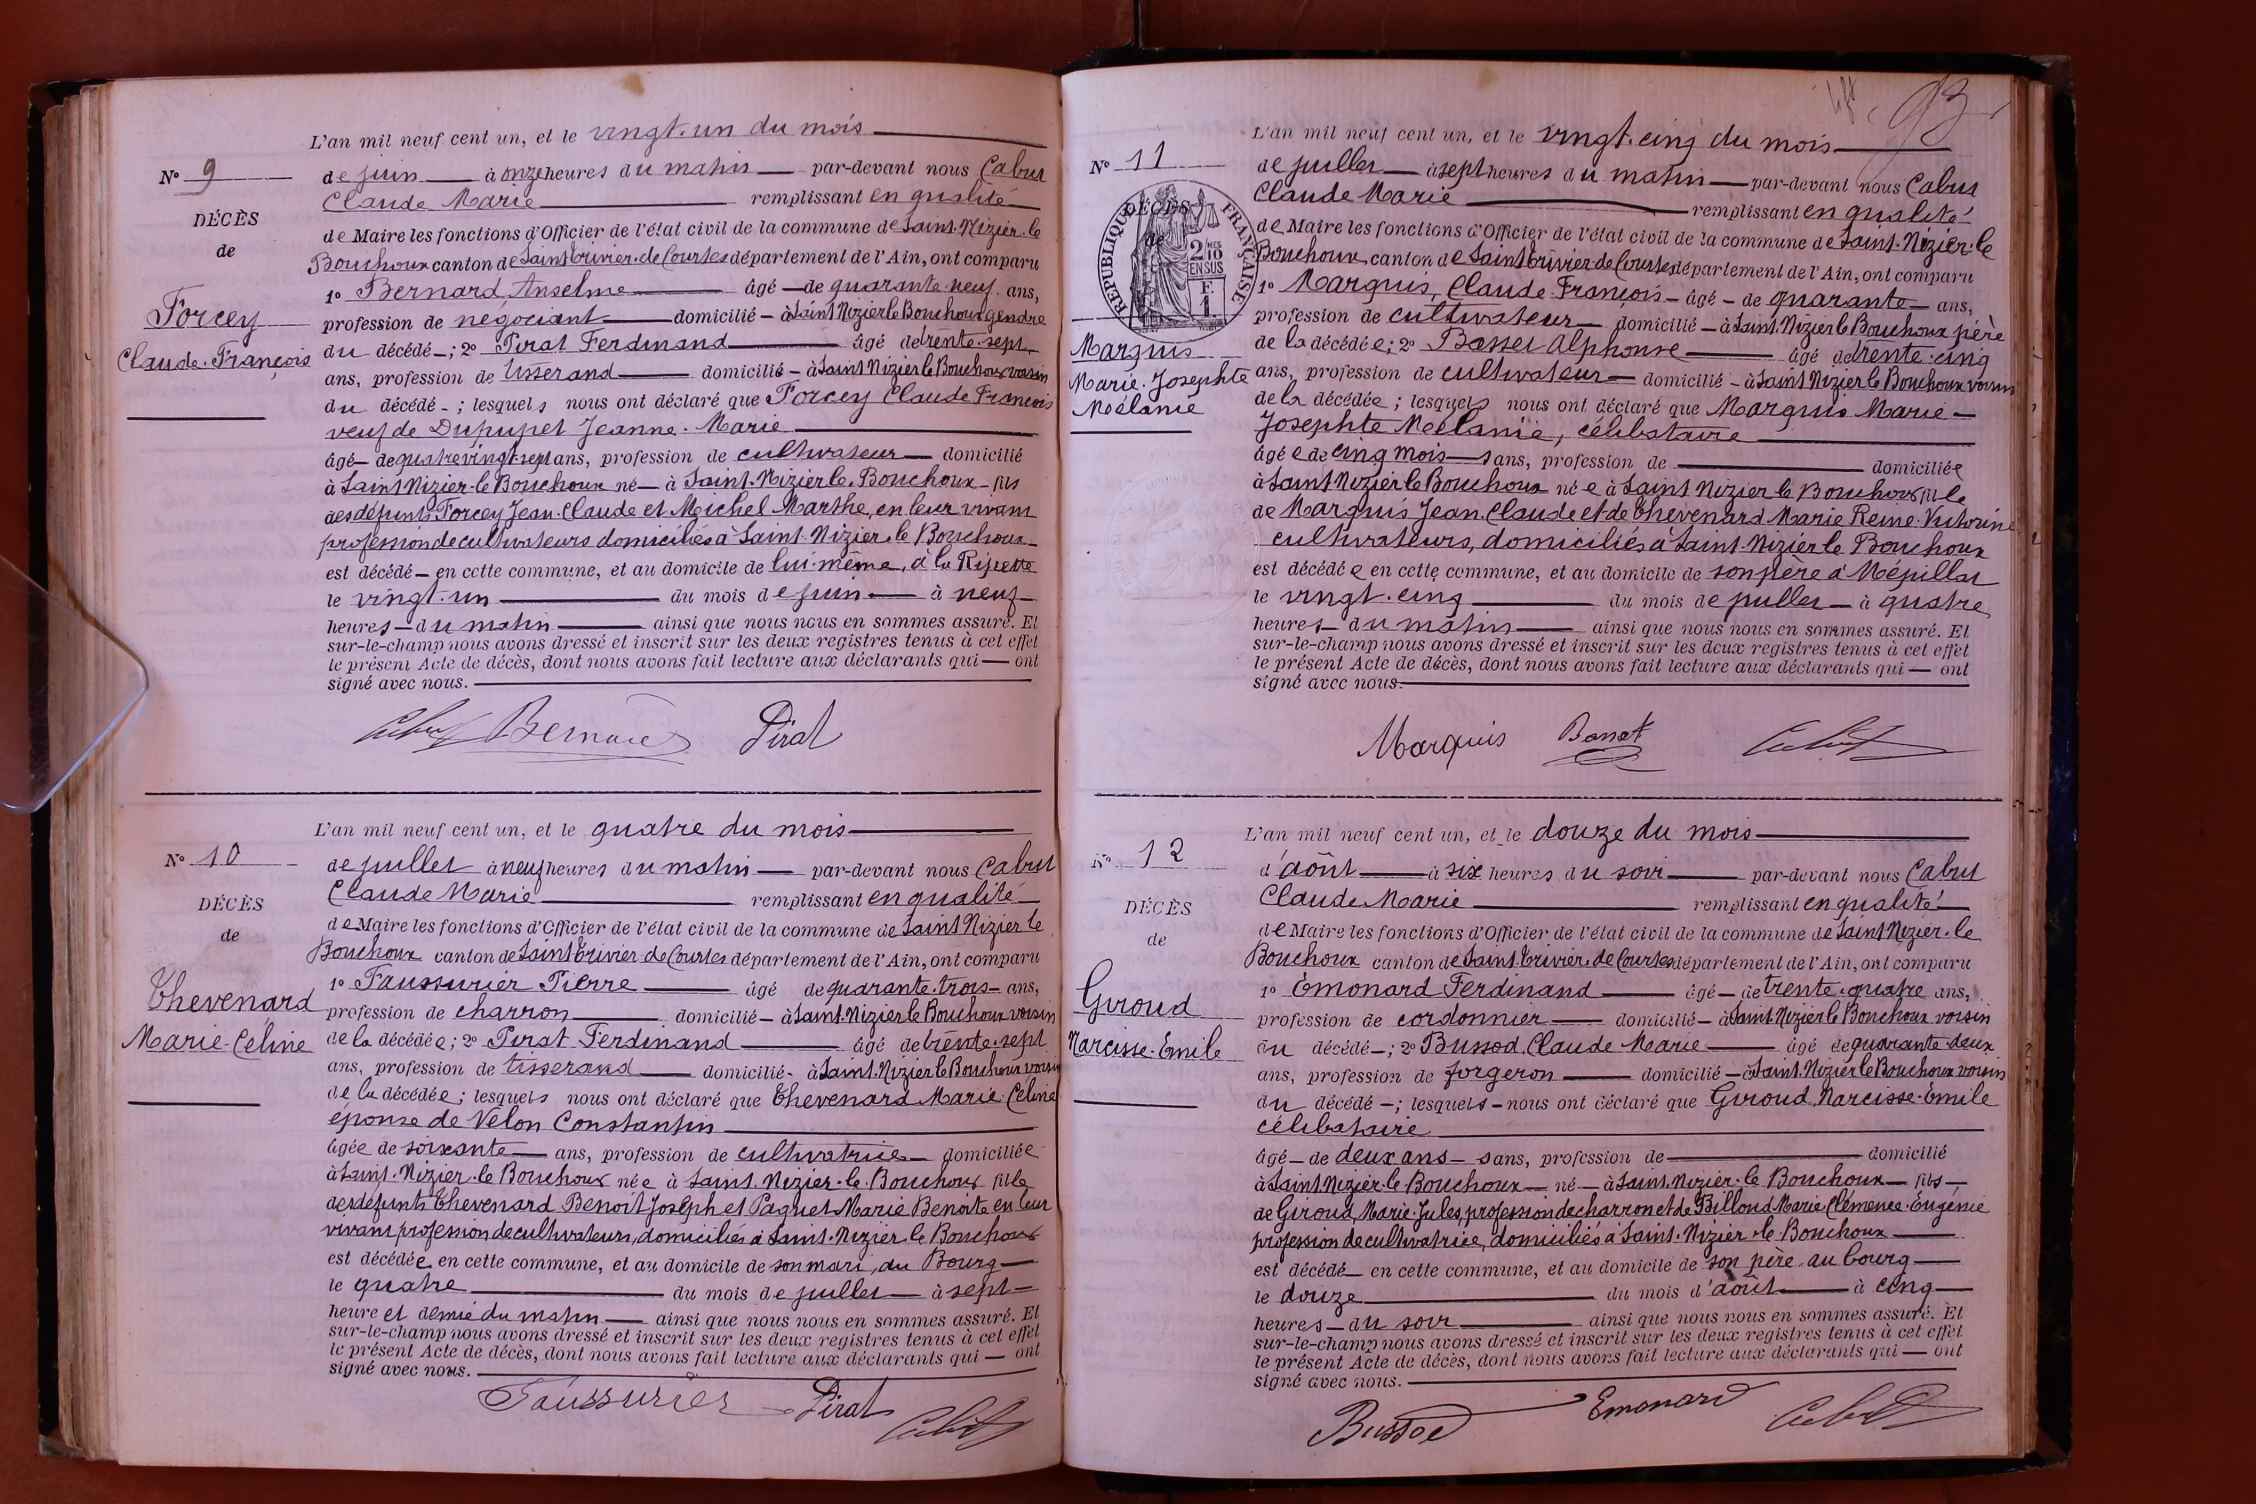 L'an mil neuf cent un, et le vingt-un du mois
N° 9
de juin à onze heures du matin par-devant nous Cabut
Claude Marie remplissant en qualité
DÉCÈS
de Maire les fonctions d'Officier de l'état civil de la commune de Saint-Nizier-le
de
Bouchoux canton de Saint Trivier-de-Courtes département de l'Ain, ont comparu
1° Bernard, Anselme âgé de quarante-neuf ans,
Forcey
profession de négociant domicilié à Saint Nizier le Bouchoux gendre
Claude-François
du décédé ; 2° Pirat Ferdinand âgé de trente-sept
ans, profession de tisserand domicilié à Saint Nizier le Bouchoux voisin
du décédé ; lesquels nous ont déclaré que Forcey Claude François
veuf de Dupupet Jeanne-Marie
âgé de quatre vingt-sept ans, profession de cultivateur domicilié
à Saint Nizier-le Bouchoux né à Saint-Nizier le Bouchoux fils
des défunts Forcey Jean-Claude et Michel Marthe, en leur vivant
profession de cultivateurs domiciliés à Saint-Nizier-le Bouchoux
est décédé en cette commune, et au domicile de lui-même, à la Ripette
le vingt-un du mois de juin à neuf
heures du matin ainsi que nous nous en sommes assuré. Et
sur-le-champ nous avons dressé et inscrit sur les deux registres tenus à cet effet
le présent Acte de décès, dont nous avons fait lecture aux déclarants qui ont
signé avec nous.
Cabut Bernard Pirat
L'an mil neuf cent un, et le quatre du mois
N° 10
de juillet à neuf heures du matin par-devant nous Cabut
Claude Marie remplissant en qualité
DÉCÈS
de Maire les fonctions d'Officier de l'état civil de la commune de Saint Nizier le
de
Bouchoux canton de Saint Trivier-de-Courtes département de l'Ain, ont comparu
1° Faussurier Pierre âgé de quarante-trois ans,
Thevenard
profession de charron domicilié à Saint-Nizier le Bouchoux voisin
Marie-Céline
de la décédée ; 2° Pirat Ferdinand âgé de trente-sept
ans, profession de tisserand domicilié à Saint-Nizier le Bouchoux voisin
de la décédée ; lesquels nous ont déclaré que Thevenard Marie-Céline
épouse de Velon Constantin
âgée de soixante ans, profession de cultivatrice domiciliée
à Saint-Nizier-le Bouchoux née à Saint-Nizier-le-Bouchoux fille
des défunts Thevenard Benoit Joseph et Paquet Marie Benoîte en leur
vivant profession de cultivateurs, domiciliés à Saint-Nizier le Bouchoux
est décédée en cette commune, et au domicile de son mari, au Bourg
le quatre du mois de juillet à sept
heure et demie du matin ainsi que nous nous en sommes assuré. Et
sur-le-champ nous avons dressé et inscrit sur les deux registres tenus à cet effet
le présent Acte de décès, dont nous avons fait lecture aux déclarants qui ont
signé avec nous.
Faussurier Pirat
Cabut
93
L'an mil neuf cent un, et le vingt-cinq du mois
N° 11
de juillet à sept heures du matin par-devant nous Cabut
Claude Marie remplissant en qualité
DÉCÈS
de
RÉPUBLIQUE FRANÇAISE
2/10 EN SUS
F. 1
de Maire les fonctions d'Officier de l'état civil de la commune de Saint-Nizier-le
Bouchoux canton de Saint Trivier de Courtes département de l'Ain, ont comparu
1° Marquis, Claude-François âgé de quarante ans,
profession de cultivateur domicilié à Saint-Nizier le Bouchoux père
Marquis
Marie-Josephte
Mélanie
de la décédée ; 2° Basset Alphonse âgé de trente-cinq
ans, profession de cultivateur domicilié à Saint Nizier le Bouchoux voisin
de la décédée ; lesquels nous ont déclaré que Marquis Marie
Josephte Mélanie, célibataire
âgée de cinq mois sans, profession de domiciliée
à Saint Nizier le Bouchoux née à Saint Nizier le Bouchoux fille
de Marquis Jean-Claude et de Thevenard Marie Reine-Victorine
cultivateurs, domiciliés à Saint-Nizier le Bouchoux
est décédée en cette commune, et au domicile de son père à Mépillat
le vingt-cinq du mois de juillet à quatre
heures du matin ainsi que nous nous en sommes assuré. Et
sur-le-champ nous avons dressé et inscrit sur les deux registres tenus à cet effet
le présent Acte de décès, dont nous avons fait lecture aux déclarants qui ont
signé avec nous.
Marquis Basset Cabut
L'an mil neuf cent un, et le douze du mois
N° 12
d'août à six heures du soir par-devant nous Cabut
Claude Marie remplissant en qualité
DÉCÈS
de Maire les fonctions d'Officier de l'état civil de la commune de Saint Nizier-le
de
Bouchoux canton de Saint-Trivier-de Courtes département de l'Ain, ont comparu
1° Émonard Ferdinand âgé de trente-quatre ans,
Giroud
profession de cordonnier domicilié à Saint-Nizier le Bouchoux voisin
Narcisse-Emile
du décédé ; 2° Bussod, Claude Marie âgé de quarante-deux
ans, profession de forgeron domicilié à Saint-Nizier le Bouchoux voisin
du décédé ; lesquels nous ont déclaré que Giroud Narcisse-Emile
célibataire
âgé de deux ans sans, profession de domicilié
à Saint Nizier-le Bouchoux né à Saint-Nizier-le Bouchoux fils
de Giroud, Marie-Jules, profession de charron et de Billoud Marie-Clémence-Eugénie
profession de cultivatrice, domiciliés à Saint-Nizier-le Bouchoux
est décédé en cette commune, et au domicile de son père au bourg
le douze du mois d'août à cinq
heures du soir ainsi que nous nous en sommes assuré. Et
sur-le-champ nous avons dressé et inscrit sur les deux registres tenus à cet effet
le présent Acte de décès, dont nous avons fait lecture aux déclarants qui ont
signé avec nous.
Bussod Emonard Cabut